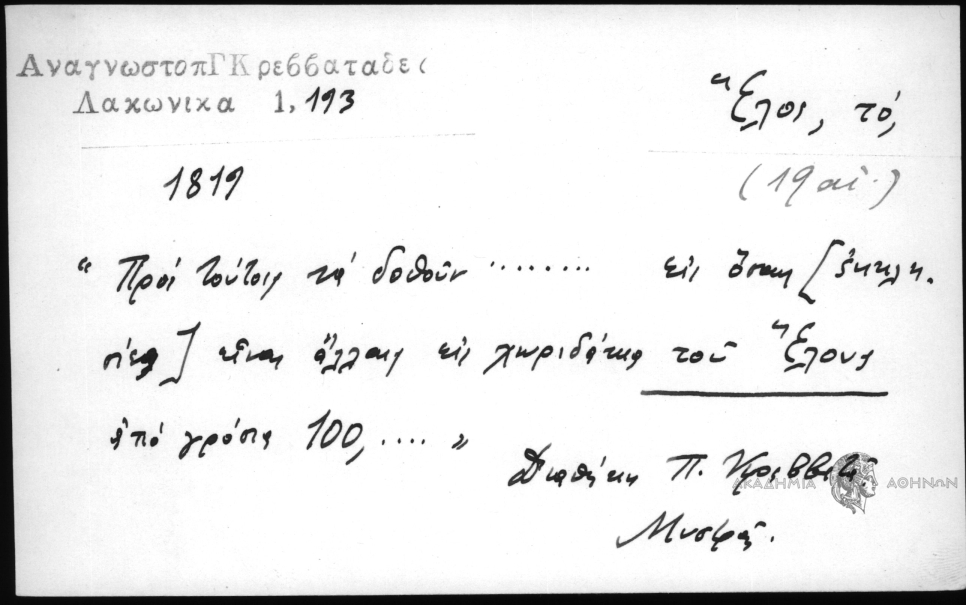 ΑναγνωστοπΓΚρεββαταδες
Λακωνικα 1, 193
Ἕλος, τό,
1819
(19 αἰ.)
"Πρός τούτοις νά δοθοῦν ......... εἰς ὅσας [ἐκκλη.
σίες] εἶναι ἄλλαις εἰς χωριδάκια τοῦ Ἕλους
ἀπό γρόσια 100, .... "
Διαθήκη Π. Κρεββατᾶ.
ΑΚΑΔΗΜΙΑ ΑΘΗΝΩΝ
Μυστρᾶς.